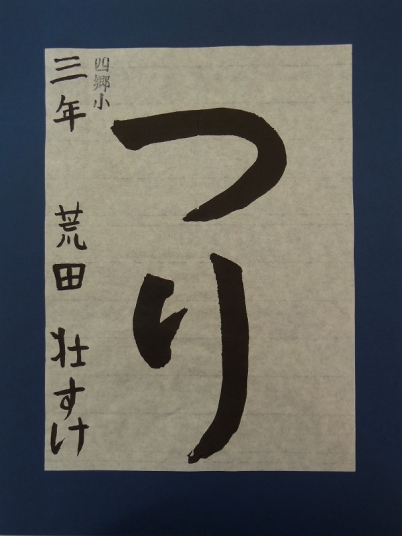 つり
四郷小
三年 荒田 壮すけ